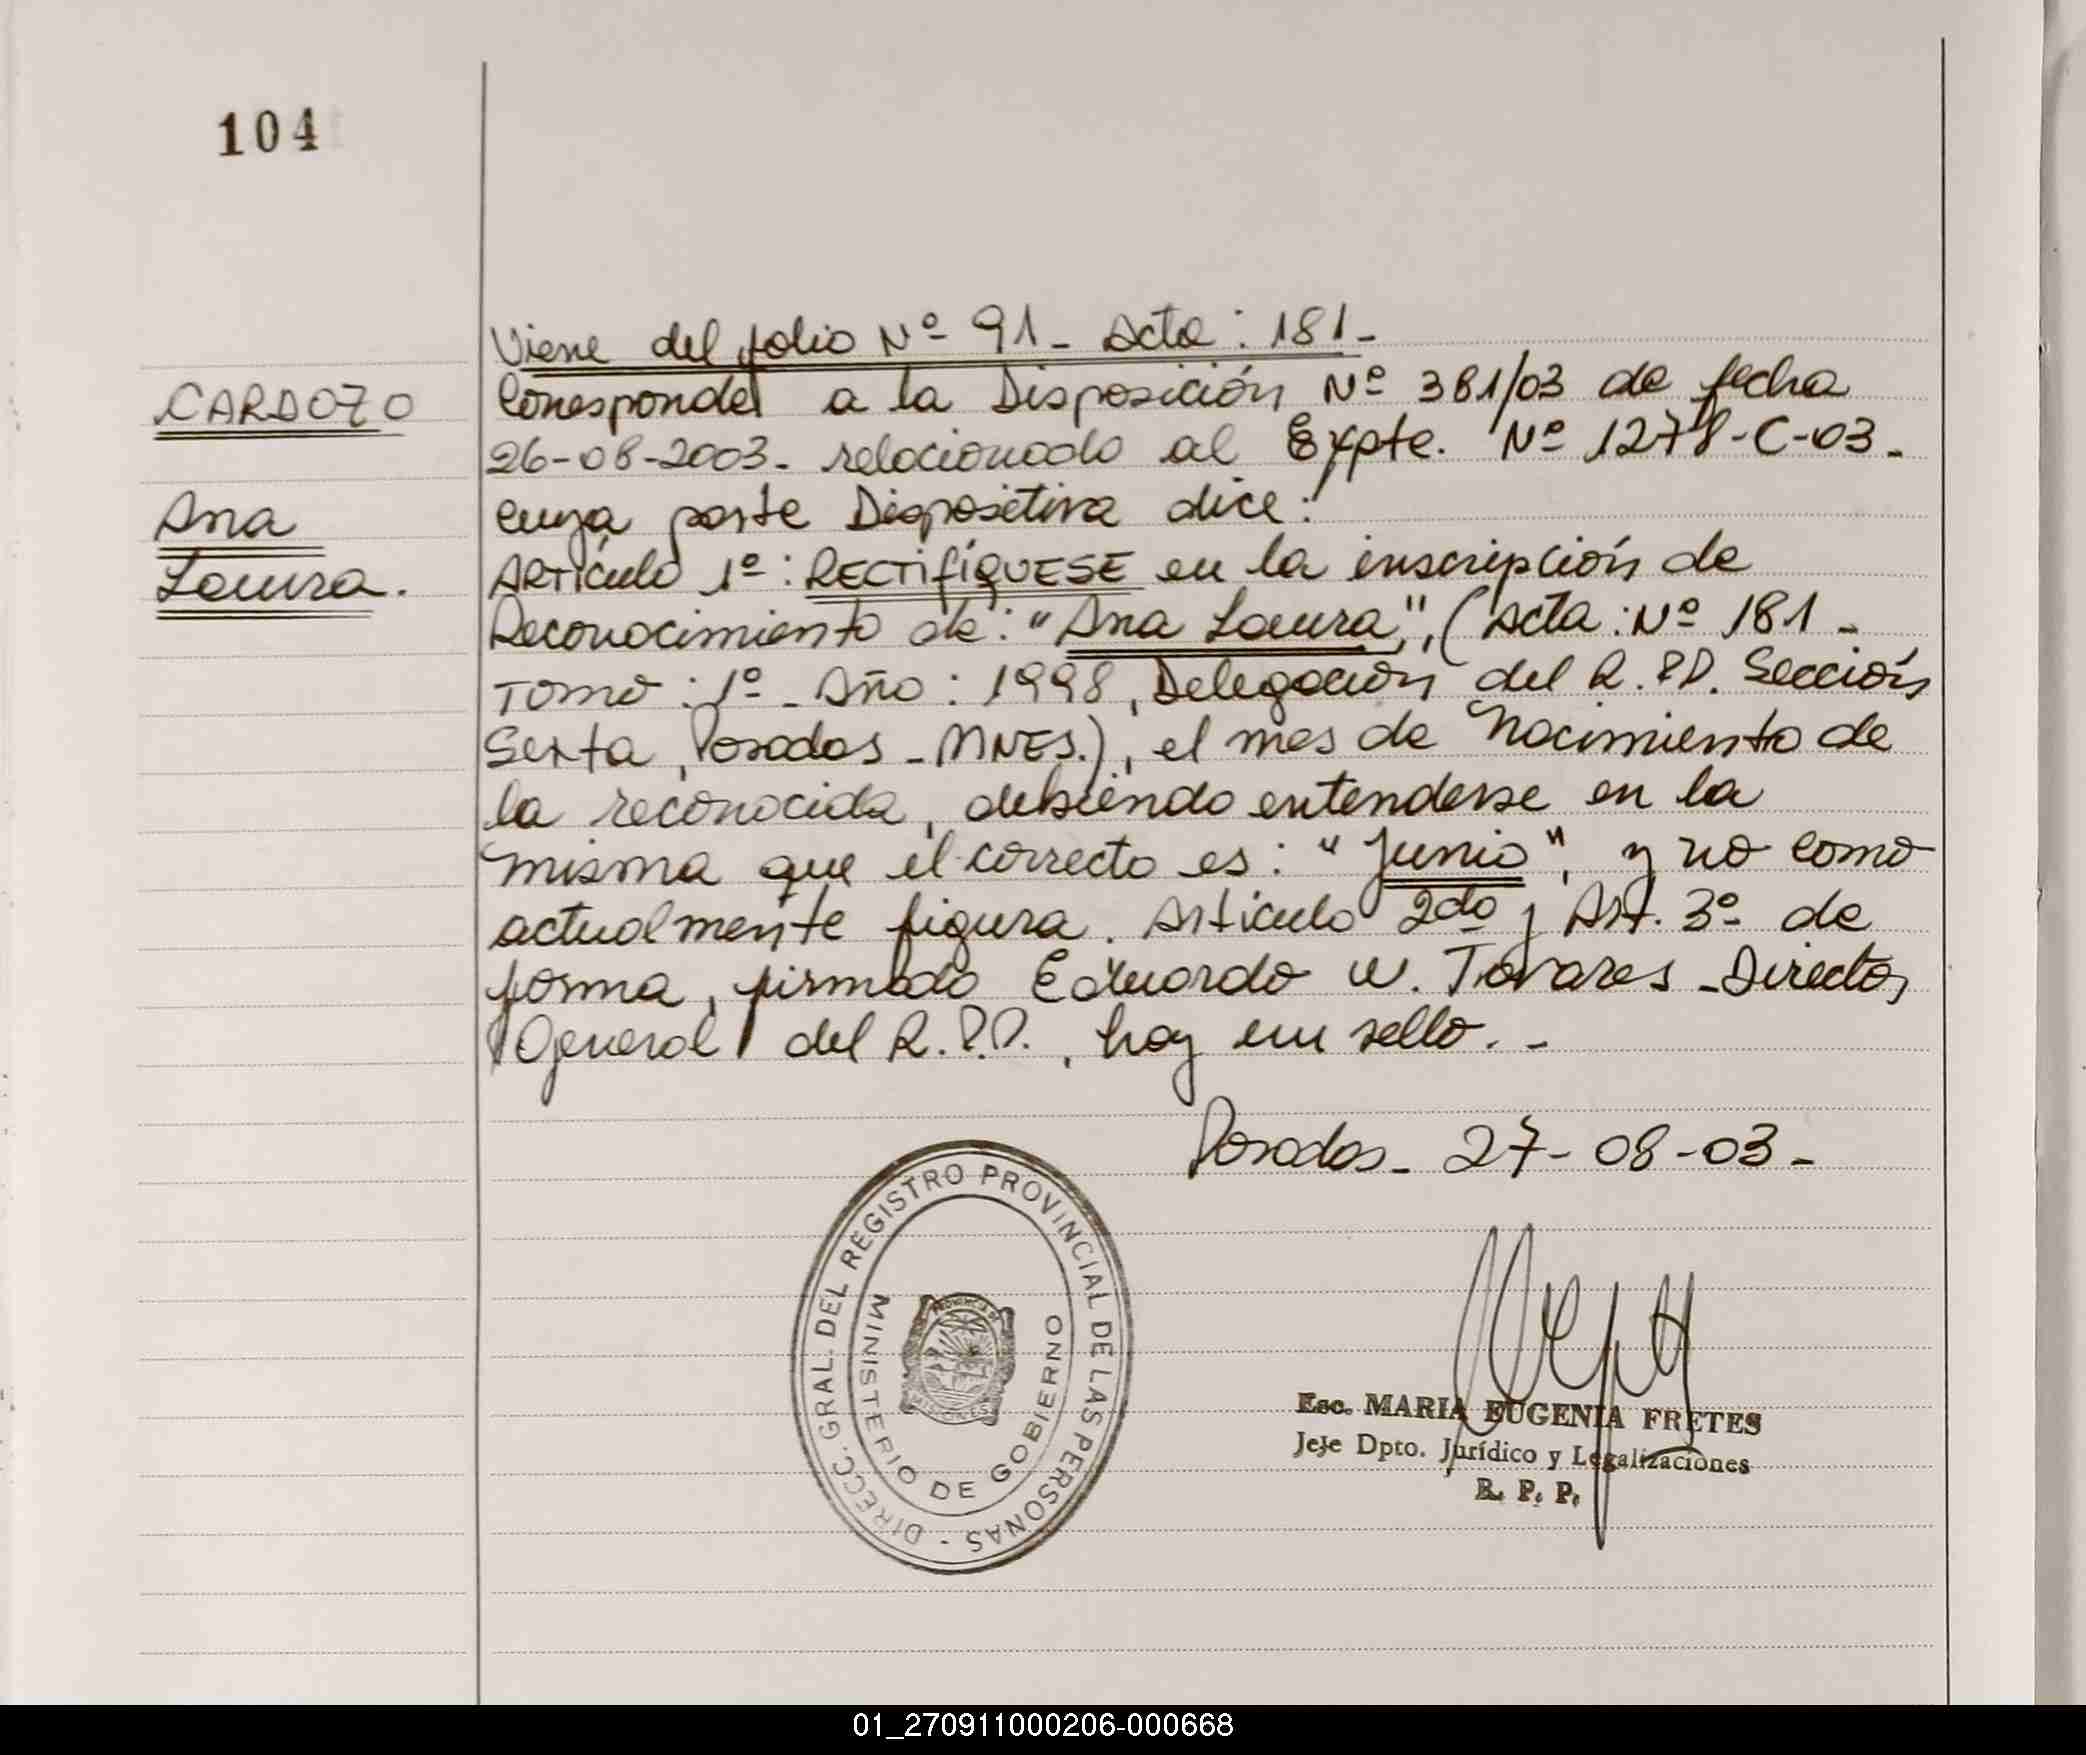 104
CARDOZO
Ana
Laura.
Viene del folio Nº 91_ Acta: 181_
Corresponde a la Disposición Nº 381/03 de fecha
26-08-2003_ relacionado al Expte. Nº 1278-C-03_
cuya parte Dispositiva dice:
Artículo 1º: RECTIFÍQUESE en la inscripción de
Reconocimiento de: "Ana Laura", (Acta: Nº 181_
Tomo: 1º_ Año: 1998, Delegación del R.P.P. Sección
Sexta, Posadas_MNES.), el mes de Nacimiento de
la reconocida, debiendo entenderse en la
misma que el correcto es: "Junio", y no como
actualmente figura. Artículo 2do y Art. 3º de
forma, firmado Eduardo W. Tavares_Director
General del R.P.P., hay un sello._
Posadas_ 27-08-03_
DIRECC. GRAL. DEL REGISTRO PROVINCIAL DE LAS PERSONAS -
MINISTERIO DE GOBIERNO
PROVINCIA DE
MISIONES
Esc. MARIA EUGENIA FRETES
Jefe Dpto. Jurídico y Legalizaciones
R. P. P.
01_270911000206-000668